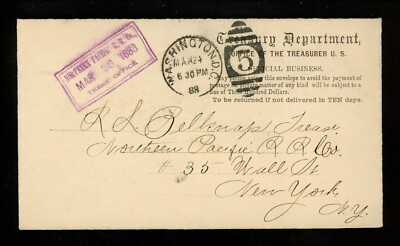 Treasury Department,
OFFICE OF THE TREASURER U. S.
OFFICIAL BUSINESS.
this envelope to avoid the payment of
postage on matter of any kind will be subject to
a fine of Three Hundred Dollars.
To be returned if not delivered in TEN days.
WASHINGTON, D.C.
MAR 24
6 30 PM
88
5
MAR 26 1888
R. L. Belknap, Treas.
Northern Pacific R.R. Co.
# 35 Wall St
New York,
N.Y.